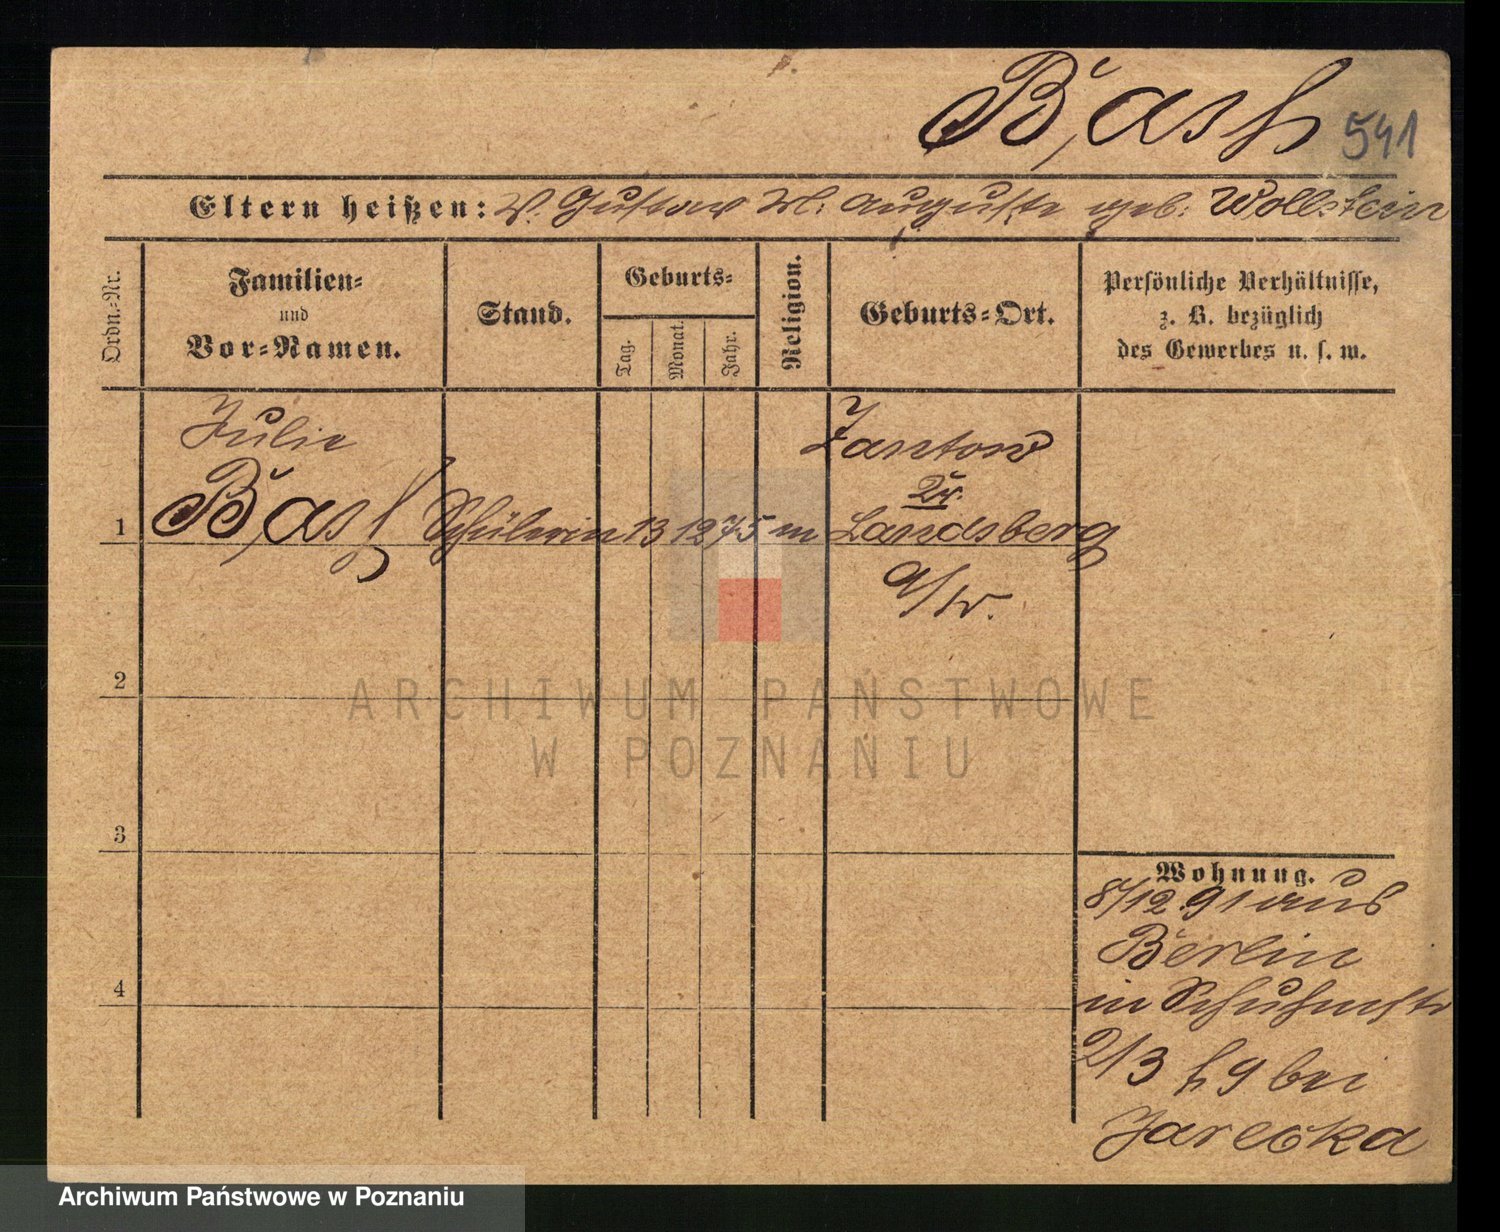 Bÿash 541
Eltern heißen: V. Gustav M. Auguste geb. Wollstein
Ordn.-Nr.
Familien-
und
Vor-Namen.
Stand.
Geburts-
Tag.
Monat.
Jahr.
Religion.
Geburts-Ort.
Persönliche Verhältnisse,
z. B. bezüglich
des Gewerbes u. s. w.
Julie
Zantow
Kr.
1 Schülerin 13 12 75 m Landsberg
a/W.
2
ARCHIWUM PAŃSTWOWE
W POZNANIU
3
Wohnung.
8/12.91 aus
Berlin
4
in Schuhmstr
2/3 h 9 bei
Jarecka
Archiwum Państwowe w Poznaniu